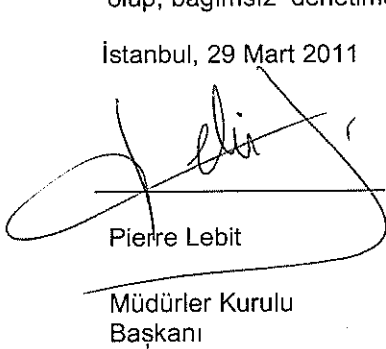 olup, bağımsız denetim
İstanbul, 29 Mart 2011
Pierre Lebit
Müdürler Kurulu
Başkanı